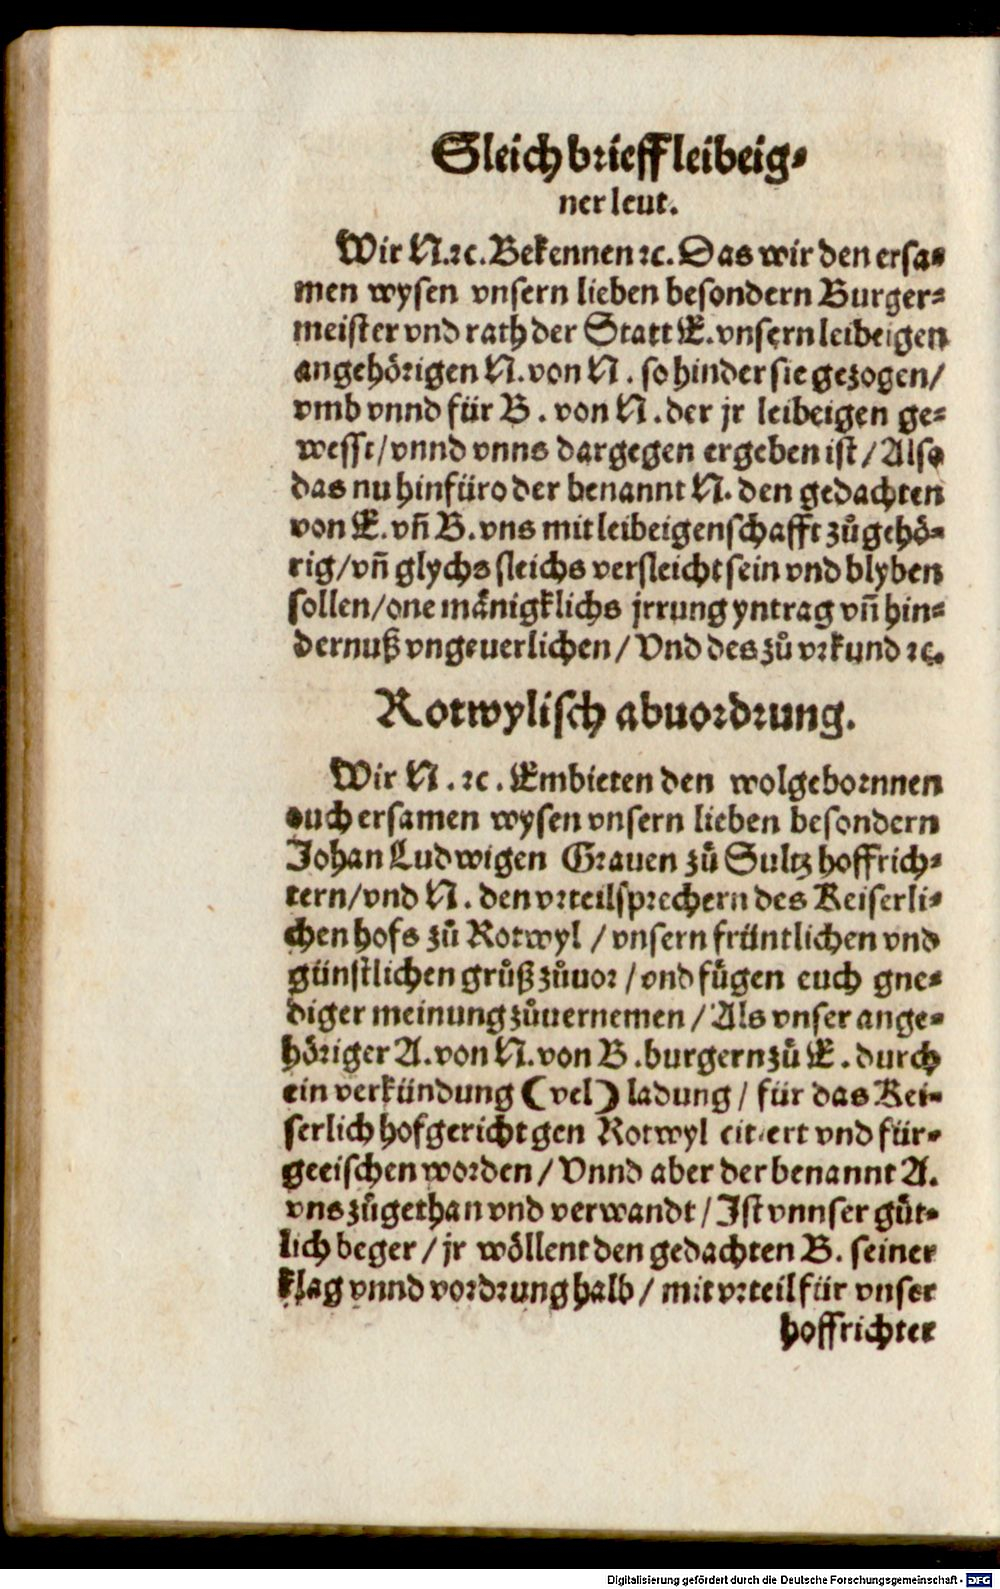 Sleich brieff leibeig⸗
ner leut.
Wir N.ꝛc. Bekennen ꝛc. Das wir den ersa⸗
men wysen vnsern lieben besondern Burger⸗
meister vnd rath der Statt E. vnsern leibeigen
angehörigen N. von N. so hinder sie gezogen/
vmb vnnd für B. von N. der jr leibeigen ge⸗
wesst/vnnd vnns dargegen ergeben ist/Also
das nu hinfüro der benannt N. den gedachten
von E. vñ B. vns mit leibeigenschafft zůgehö⸗
rig/vñ glychs sleichs versleicht sein vnd blyben
sollen/one mänigklichs jrrung yntrag vñ hin⸗
dernuß vngeuerlichen/Vnd des zů vrkund ꝛc.
Rotwylisch abuordrung.
Wir N.ꝛc. Embieten den wolgebornnen
ouch ersamen wysen vnsern lieben besondern
Johan Ludwigen Grauen zů Sultz hoffrich⸗
tern/vnd N. den vrteilsprechern des Keiserli⸗
chen hofs zů Rotwyl/vnsern früntlichen vnd
günstlichen grůß zůuor/vnd fůgen euch gne⸗
diger meinung zůuernemen/Als vnser ange⸗
höriger A. von N. von B. burgern zů E. durch
ein verkündung (vel) ladung/für das Kei⸗
serlich hofgericht gen Rotwyl citiert vnd für⸗
geeischen worden/Vnnd aber der benannt A.
vns zůgethan vnd verwandt/Ist vnnser gůt⸗
lich beger/jr wöllent den gedachten B. seiner
klag vnnd vordrung halb/mit vrteil für vnser
hoffrichter
Digitalisierung gefördert durch die Deutsche Forschungsgemeinschaft - DFG